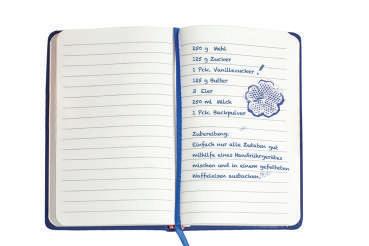 250 g Mehl
125 g Zucker
1 Pck. Vanillezucker
125 g Butter
3 Eier
250 ml Milch
1 Pck. Backpulver
Zubereitung:
Einfach nur alle Zutaten gut
mithilfe eines Handrührgerätes
mischen und in einem gefetteten
Waffeleisen ausbacken.